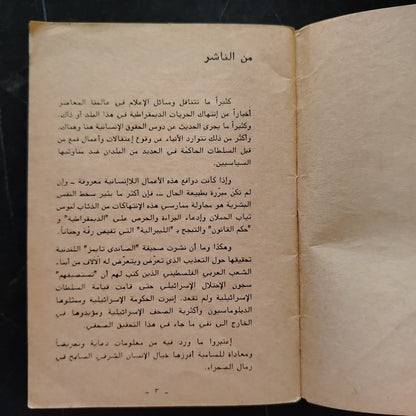 من الناشر
كثيراً ما تتناقل وسائل الإعلام في عالمنا المعاصر
أخباراً عن إنتهاك الحريات الديمقراطية في هذا البلد أو ذاك.
وكثيراً ما يجري الحديث عن دوس الحقوق الإنسانية هنا وهناك.
وأكثر من ذلك تتوارد الأنباء عن وقوع إعتقالات وأعمال قمع من
قبل السلطات الحاكمة في العديد من البلدان ضد مناوئيها
السياسيين.
وإذا كانت دوافع هذه الأعمال اللاإنسانية معروفة – وإن
لم تكن مبرّرة بطبيعة الحال – فإن أكثر ما يثير سخط النفس
البشرية هو محاولة ممارسي هذه الإنتهاكات من الذئاب لبوس
ثياب الحملان وإدعاء البراءة والحرص على "الديمقراطية" و
"حكم القانون" والتبجح بـ "الليبرالية" التي تفيض رقّة وحناناً.
وهكذا وما أن نشرت صحيفة "الصاندي تايمز" اللندنية
تحقيقها حول التعذيب الذي تعرّض ويتعرّض له الآلاف من أبناء
الشعب العربي الفلسطيني الذين كتب لهم أن "تستضيفهم"
سجون الإحتلال الإسرائيلي حتى قامت قيامة السلطات
الإسرائيلية ولم تقعد. إنبرت الحكومة الإسرائيلية وممثلوها
الدبلوماسيون وأكثرية الصحف الإسرائيلية ومؤيدوها في
الخارج الى نفي ما جاء في هذا التحقيق الصحفي.
إعتبروا ما ورد فيه من معلومات دعاية وتحريضاً
ومعاداة للسامية أفرزها خيال الإنسان الشرقي السابح في
رمال الصحراء.
– ٣ –